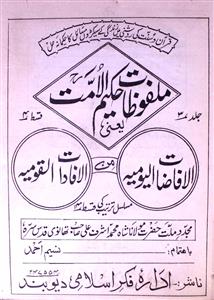 ملفوظات
حکیم الامت
یعنی
جلد ۳
قسط ۴
الافاضات الیومیہ
من
الافادات القومیہ
مسلسل ترتیب کی قسط
مجدد ملت حضرت مولانا شاہ محمد اشرف علی صاحب تھانوی قدس سرہ
باہتمام: نسیم احمد
۲۴۷۵۵۴
ناشر: ادارہ فکر اسلامی دیوبند